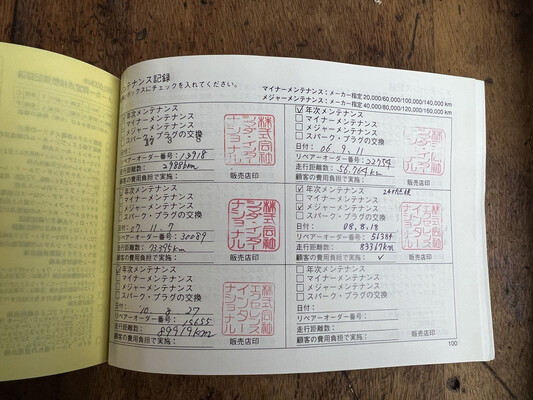 メンテナンス記録
ボックスにチェックを入れてください。
マイナーメンテナンス：メーカー指定 20,000/60,000/100,000/140,000 km
メジャーメンテナンス：メーカー指定 40,000/80,000/120,000/160,000 km
年次メンテナンス
マイナーメンテナンス
メジャーメンテナンス
スパーク・プラグの交換
日付：
リペアーオーダー番号：13918
走行距離数：
2988km
顧客の費用負担で実施：
販売店印
年次メンテナンス
マイナーメンテナンス
メジャーメンテナンス
スパーク・プラグの交換
日付：06.9.11
リペアーオーダー番号：22954
走行距離数：56,764km
顧客の費用負担で実施：
販売店印
年次メンテナンス
マイナーメンテナンス
メジャーメンテナンス
スパーク・プラグの交換
07.11.7
リペアーオーダー番号：30089
走行距離数：
73395km
顧客の費用負担で実施：
販売店印
年次メンテナンス
マイナーメンテナンス
メジャーメンテナンス
スパーク・プラグの交換
日付：08.8.18
リペアーオーダー番号：51384
走行距離数：83367km
顧客の費用負担で実施：
販売店印
年次メンテナンス
マイナーメンテナンス
メジャーメンテナンス
スパーク・プラグの交換
日付：10.8.27
リペアーオーダー番号：
走行距離数：
89919km
顧客の費用負担で実施：
販売店印
年次メンテナンス
マイナーメンテナンス
メジャーメンテナンス
スパーク・プラグの交換
日付：
リペアーオーダー番号：
走行距離数：
顧客の費用負担で実施：
販売店印
100